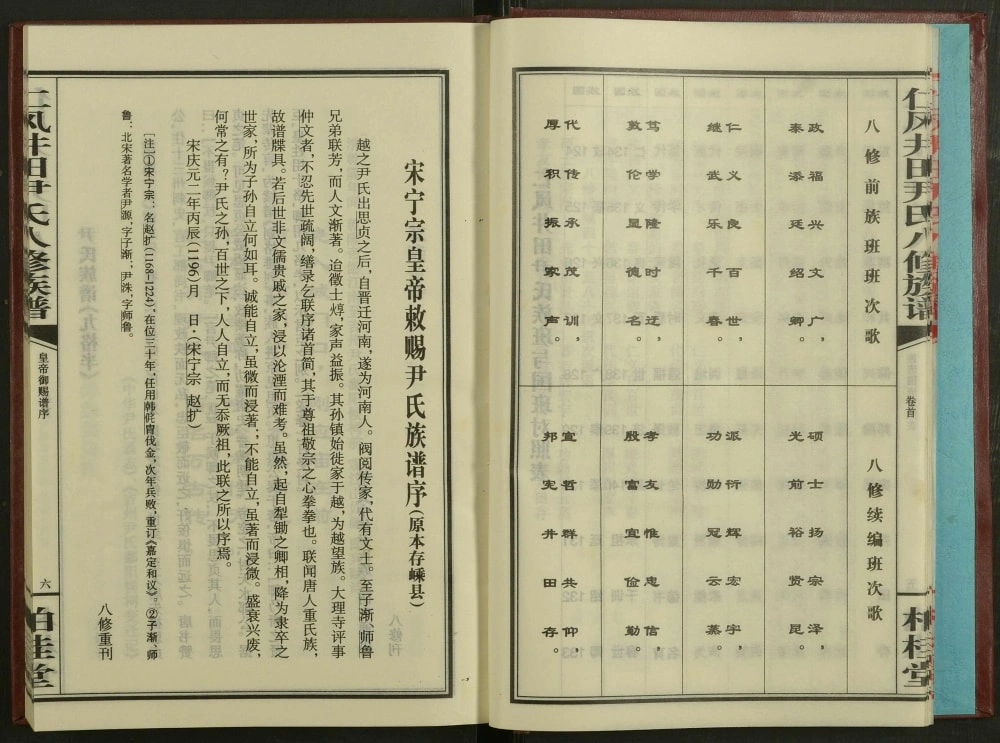 仁凤井田尹氏八修族谱
卷首
柏桂堂
八修前族班班次歌
政福兴文广，
泰添廷绍卿。
仁义良百世，
继武乐千春。
笃学隆时迁，
敦伦显德名。
代传承茂训，
厚积振家声。
八修续编班次歌
硕士扬宗泽，
光前裕贤昆。
派衍辉宏宇，
功勋冠云慕。
孝友惟忠信，
殷富宜俭勤。
宣哲群共仰，
邦宪井田存。
宋宁宗皇帝敕赐尹氏族谱序（原本存嵊县）
越之尹氏出思贞之后，自晋迁河南，遂为河南人。阀阅传家，代有文士。至子渐、师鲁
兄弟联芳，而人文渐著。迨徵士焞，家声益振。其孙镇始徙家于越，为越望族。大理寺评事
仲文者，不忍先世疏阔，缮录乞联序诸首简，其于尊祖敬宗之心拳拳也。联闻唐人重氏族，
故谱牒具。若后世非文儒贵戚之家，浸以沦湮而难考。虽然，起自犁锄之卿相，降为隶卒之
世家，所为子孙自立何如耳。诚能自立，虽微而浸著；不能自立，虽著而浸微。盛衰兴废，
何常之有？尹氏之孙，百世之下，人人自立，而无忝厥祖，此联之所以序焉。
宋庆元二年丙辰（1196）月　日·（宋宁宗　赵扩）
［注］①宋宁宗：名赵扩（1168–1224），在位三十年，任用韩侂胄伐金，次年兵败，重订《嘉定和议》。②子渐、师
鲁：北宋著名学者尹源，字子渐；尹洙，字师鲁。
八修重刊
仁凤井田尹氏八修族谱
皇帝御赐谱序
六
柏桂堂